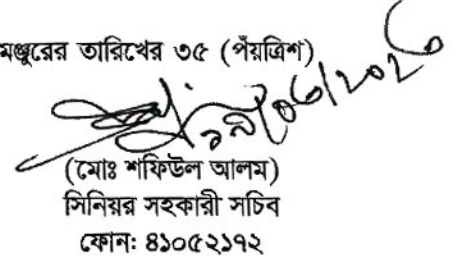 মঞ্জুরের তারিখের ৩৫ (পঁয়ত্রিশ)
(মোঃ শফিউল আলম)
সিনিয়র সহকারী সচিব
ফোন: ৪১০৫২১৭২